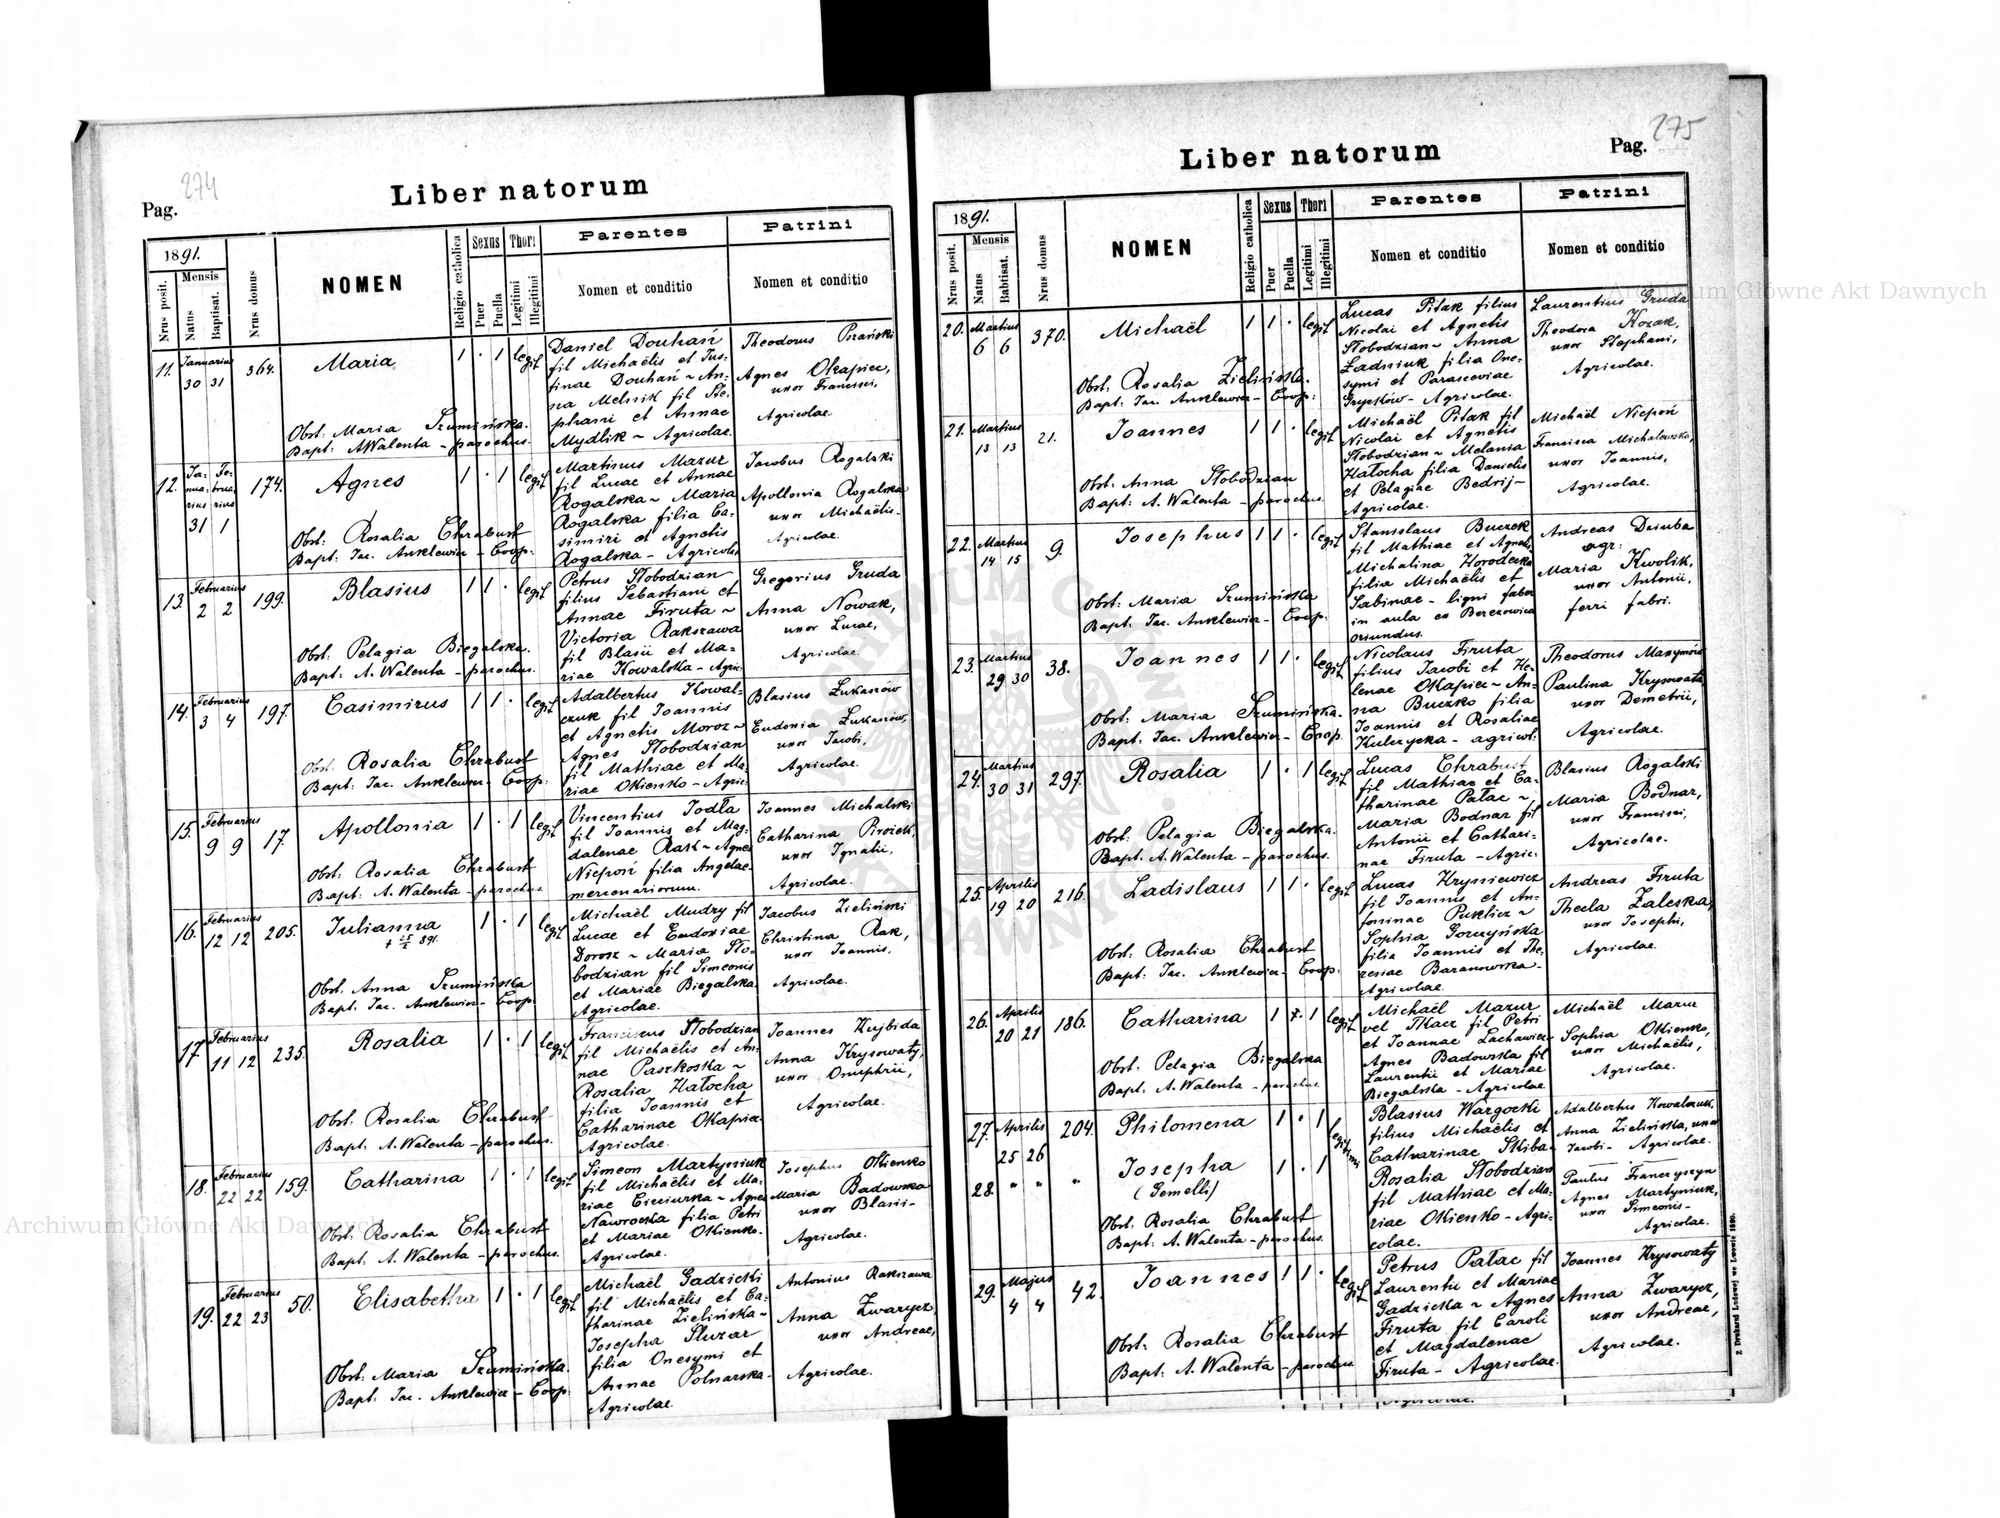 Pag. 274
Liber natorum
1891.
Nrus posit.
Mensis
Natus
Baptisat.
Nrus domus
NOMEN
Religio catholica
Sexus
Puer
Puella
Thori
Legitimi
Illegitimi
Parentes
Nomen et conditio
Patrini
Nomen et conditio
11. Januarius 30 31 364. Maria 1 · 1 legit
Obst: Maria Szumińska.
Bapt: A Walenta - parochus.
Daniel Douhań
fil Michaëlis et Jus-
tinae Douhań ~ An-
na Melnik fil Ste-
phani et Annae
Mydlik ~ Agricolae.
Theodorus
Agnes Okapiec,
uxor Francisci,
Agricolae.
12. Ja-nua-rius 31 Fe-brua-rius 1 174. Agnes 1 · 1 legit
Obst: Rosalia Chrabust
Bapt: Jac. Anklewicz - Coop:
Martinus Mazur
fil Lucae et Annae
Rogalska ~ Maria
Rogalska filia Ca-
simiri et Agnetis
Rogalska - Agricolae
Jacobus Rogalski
Apollonia Rogalska
uxor Michaëlis -
Agricolae.
13. Februarius 2 2 199. Blasius 1 1 · legit
Obst: Pelagia Biegalska.
Bapt: A. Walenta - parochus.
Petrus Słobodzian
filius Sebastiani et
Annae Firuta ~
Victoria Rakszawa
fil Blasii et Ma-
riae Kowalska - Agric:
Gregorius Gruda
Anna Nowak,
uxor Lucae,
Agricolae.
14. Februarius 3 4 197. Casimirus 1 1 · legit
Obst: Rosalia Chrabust
Bapt: Jac. Anklewicz - Coop:
Adalbertus Kowal-
czuk fil Joannis
et Agnetis Moroz ~
Agnes Słobodzian
fil Mathiae et Ma-
riae Okienko - Agric:
Blasius Łukasiów
Eudoxia Łukasiów,
uxor Jacobi,
Agricolae.
15. Februarius 9 9 17. Apollonia 1 · 1 legit
Obst: Rosalia Chrabust
Bapt: A. Walenta - parochus.
Vincentius Jodła
fil Joannis et Mag-
dalenae Rak ~ Agnes
Niepoń filia Angelae
mercenariorum.
Joannes Michalski
Catharina Pirożek,
uxor Ignatii,
Agricolae.
16. Februarius 12 12 205. Julianna 1 · 1 legit
Obst: Anna Szumińska
Bapt: Jac. Anklewicz - Coop:
Michaël Mudry fil
Lucae et Eudoxiae
Dorosz ~ Maria Sło-
bodzian fil Simeonis
et Mariae Biegalska.
Agricolae.
Jacobus Zieliński
Christina Rak,
uxor Joannis,
Agricolae.
17 Februarius 11 12 235. Rosalia 1 · 1 legit
Obst: Rosalia Chrabust
Bapt: A. Walenta - parochus.
Franciscus Słobodzian
fil Michaëlis et An-
nae Paszkoska ~
Rosalia Hałocha
filia Joannis et
Catharinae Okapiec.
Agricolae.
Joannes Kujbida
Anna Krysowaty,
uxor Onuphrii,
Agricolae.
18. Februarius 22 22 159. Catharina 1 · 1 legit
Obst: Rosalia Chrabust
Bapt: A. Walenta - parochus.
Simeon Martyniuk
fil Michaëlis et Ma-
riae Cieciurska ~ Agnes
Nawrocka filia Petri
et Mariae Okienko.
Agricolae.
Josephus Okienko
Maria Badowska
uxor Blasii -
Agricolae.
19. Februarius 22 23 50. Elisabetha 1 · 1 legit
Obst: Maria Szumińska.
Bapt: Jac. Anklewicz - Coop:
Michaël Gadzicki
fil Michaëlis et Ca-
tharinae Zielińska ~
Josepha Śluzar
filia Onesymi et
Annae Polnarska -
Agricolae.
Antonius Rakszawa
Anna Zwarycz,
uxor Andreae,
Agricolae.
Pag. 275
Liber natorum
1891.
Nrus posit.
Mensis
Natus
Babtisat.
Nrus domus
NOMEN
Religio catholica
Sexus
Puer
Puella
Thori
Legitimi
Illegitimi
Parentes
Nomen et conditio
Patrini
Nomen et conditio
20. Martius 6 6 370. Michaël 1 1 · legit
Obst: Rosalia Zielińska.
Bapt: Jac. Anklewicz - Coop:
Lucas Pitak filius
Nicolai et Agnetis
Słobodzian ~ Anna
Zadniuk filia One-
symi et Parasceviae
Gryśków - Agricolae.
Laurentius Gruda
Theodora Kozak,
uxor Stephani,
Agricolae.
21. Martius 13 13 21. Joannes 1 1 · legit
Obst: Anna Słobodzian
Bapt: A. Walenta - parochus.
Michaël Pitak fil
Nicolai et Agnetis
Słobodzian ~ Melania
Hałocha filia Danielis
et Pelagiae Bedrij -
Agricolae.
Michaël Niepoń
Francisca Michalewska,
uxor Joannis,
Agricolae.
22. Martius 14 15 9. Josephus 1 1 · legit
Obst: Maria Szumińska
Bapt: Jac. Anklewicz - Coop:
Stanislaus Buczek
fil Mathiae et Agnetis
Michalina Horodecka
filia Michaëlis et
Sabinae - ligni faber
in aula ex Berezowica
oriundus.
Andreas Dziuba
agr:
Maria Kwolik,
uxor Antonii,
ferri fabri.
23. Martius 29 30 38. Joannes 1 1 · legit
Obst: Maria Szumińska.
Bapt: Jac. Anklewicz - Coop.
Nicolaus Firuta
filius Jacobi et He-
lenae Okapiec ~ An-
na Buczko filia
Joannis et Rosaliae
Kulczycka - agricol:
Theodorus Maxymów
Paulina Krysowata
uxor Demetrii,
Agricolae.
24. Martius 30 31 297. Rosalia 1 · 1 legit
Obst: Pelagia Biegalska.
Bapt: A. Walenta - parochus.
Lucas Chrabust
fil Mathiae et Ca-
tharinae Pałac ~
Maria Bodnar fil
Antonii et Cathari-
nae Firuta - Agric:
Blasius Rogalski
Maria Bodnar,
uxor Francisci,
Agricolae.
25. Aprilis 19 20 216. Ladislaus 1 1 · legit
Obst: Rosalia Chrabust
Bapt: Jac. Anklewicz - Coop:
Lucas Hryniewicz
fil Joannis et An-
toninae Puklicz ~
Sophia Gorczyńska
filia Joannis et The-
resiae Baranowska -
Agricolae.
Andreas Firuta
Thecla Zaleska,
uxor Josephi,
Agricolae.
26. Aprilis 20 21 186. Catharina 1 · 1 legit
Obst: Pelagia Biegalska
Bapt: A. Walenta - parochus.
Michaël Mazur
vel Tkacz fil Petri
et Joannae Lachawiec ~
Agnes Badowska fil
Laurentii et Mariae
Biegalska - Agricolae
Michaël Mazur
Sophia Okienko,
uxor Michaëlis,
Agricolae.
27. Aprilis 25 26 204. Philomena 1 · 1 legitimi
28. " " " Josepha 1 · 1
(Gemelli)
Obst: Rosalia Chrabust
Bapt: A. Walenta - parochus.
Blasius Wargocki
filius Michaëlis et
Catharinae Skiba -
Rosalia Słobodzian
fil Mathiae et Ma-
riae Okienko - Agri-
colae.
Adalbertus Kowalczuk,
Anna Zielińska, uxor
Jacobi - Agricolae.
Paulus Franczyszyn
Agnes Martyniuk,
uxor Simeonis -
Agricolae.
29. Majus 4 4 42. Joannes 1 1 · legit
Obst: Rosalia Chrabust
Bapt: A. Walenta - parochus.
Petrus Pałac fil
Laurentii et Mariae
Gadzicka ~ Agnes
Firuta fil Caroli
et Magdalenae
Firuta - Agricolae.
Joannes Krysowaty
Anna Zwarycz,
uxor Andreae,
Agricolae.
Z Drukarni Ludowej we Lwowie 1890.
Archiwum Główne Akt Dawnych
Archiwum Główne Akt Dawnych